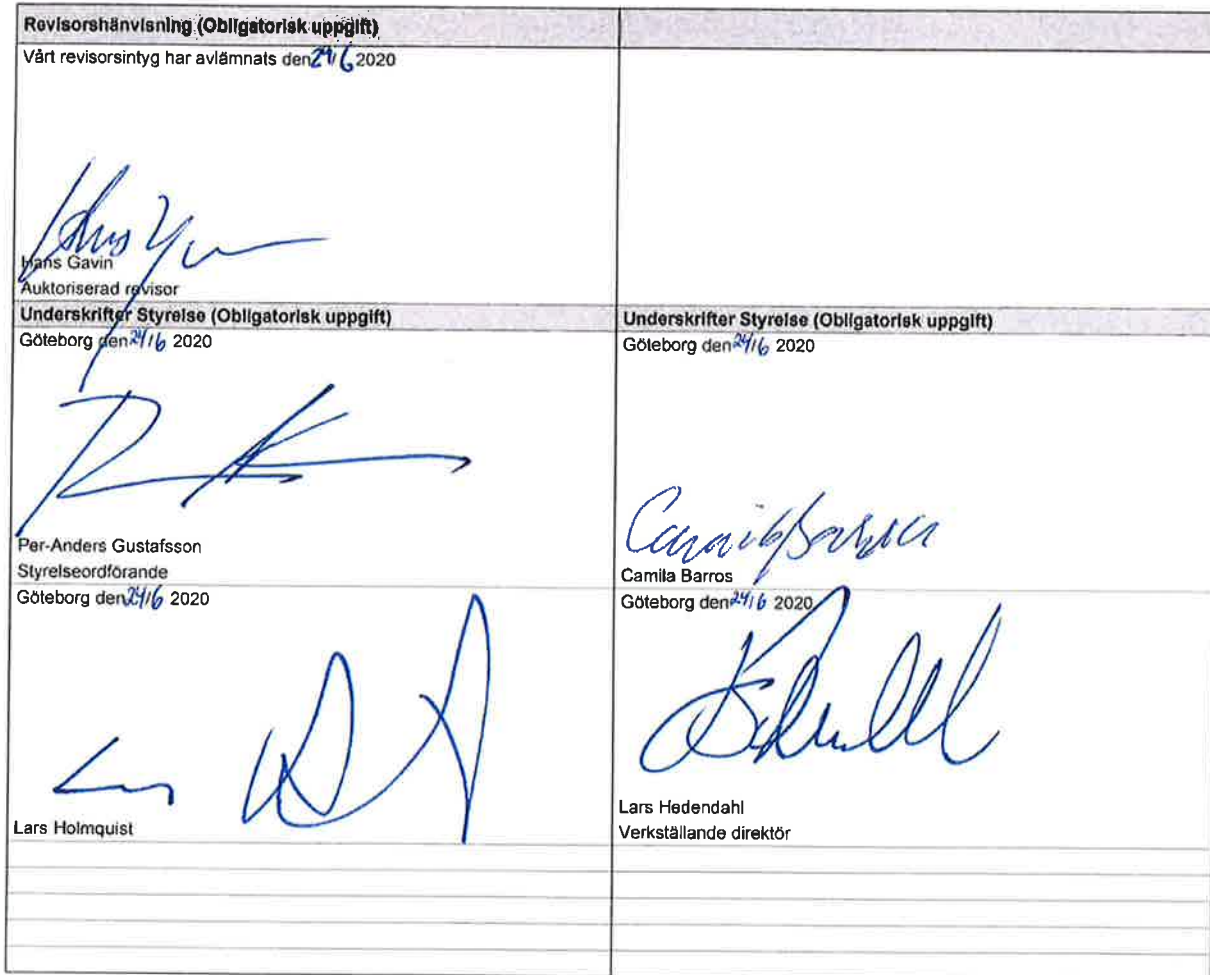 Revisorshänvisning (Obligatorisk uppgift)
Vårt revisorsintyg har avlämnats den 24/6 2020
Hans Gavin
Auktoriserad revisor
Underskrifter Styrelse (Obligatorisk uppgift)
Göteborg den 24/6 2020
Per-Anders Gustafsson
Styrelseordförande
Göteborg den 24/6 2020
Lars Holmquist
Underskrifter Styrelse (Obligatorisk uppgift)
Göteborg den 24/6 2020
Camila Barros
Camila Barros
Göteborg den 24/6 2020
Lars Hedendahl
Verkställande direktör